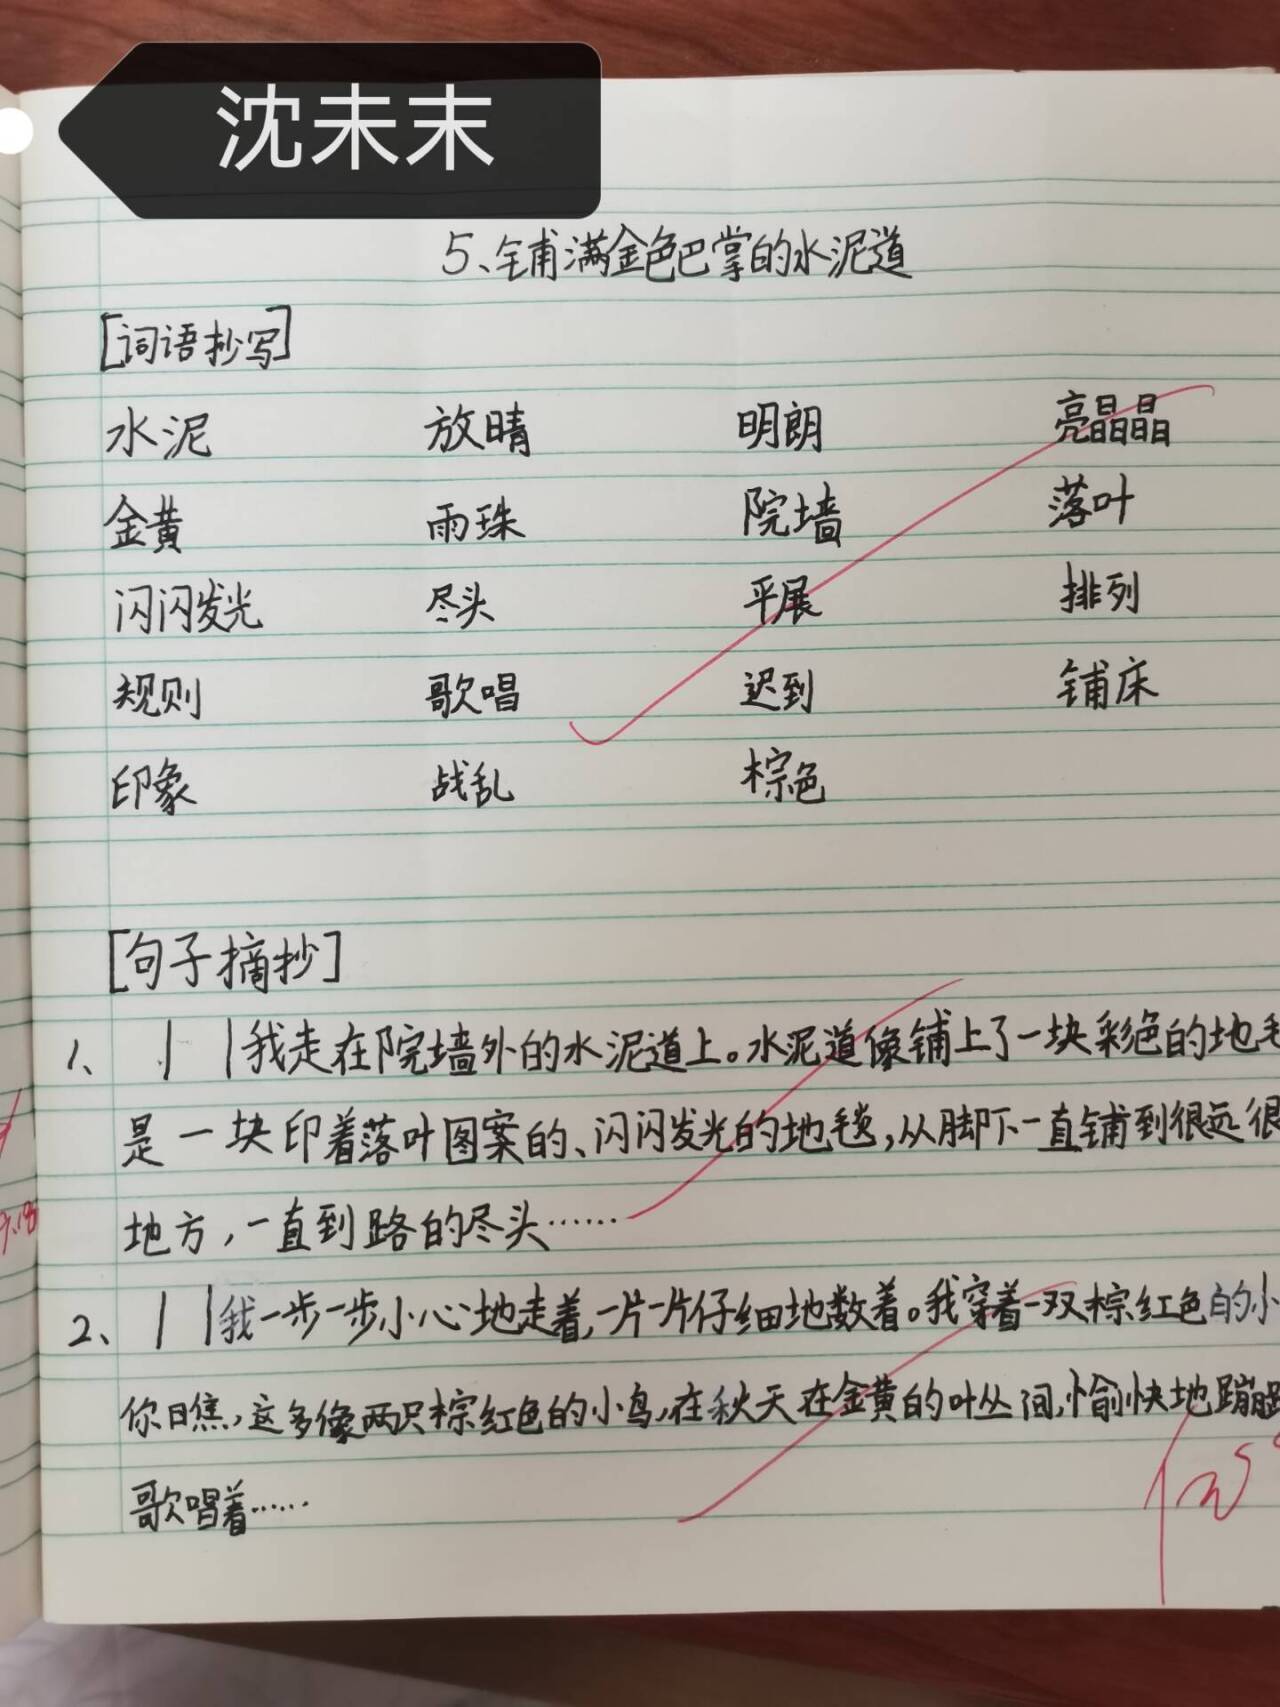 沈未末
5、铺满金色巴掌的水泥道
[词语抄写]
水泥 放晴 明朗 亮晶晶
金黄 雨珠 院墙 落叶
闪闪发光 尽头 平展 排列
规则 歌唱 迟到 铺床
印象 战乱 棕色
[句子摘抄]
1、 我走在院墙外的水泥道上。水泥道像铺上了一块彩色的地毛
是一块印着落叶图案的、闪闪发光的地毯,从脚下一直铺到很远很
地方,一直到路的尽头……
2、 我一步一步小心地走着,一片一片仔细地数着。我穿着一双棕红色的小
你瞧,这多像两只棕红色的小鸟,在秋天在金黄的叶丛间,愉快地蹦
歌唱着……